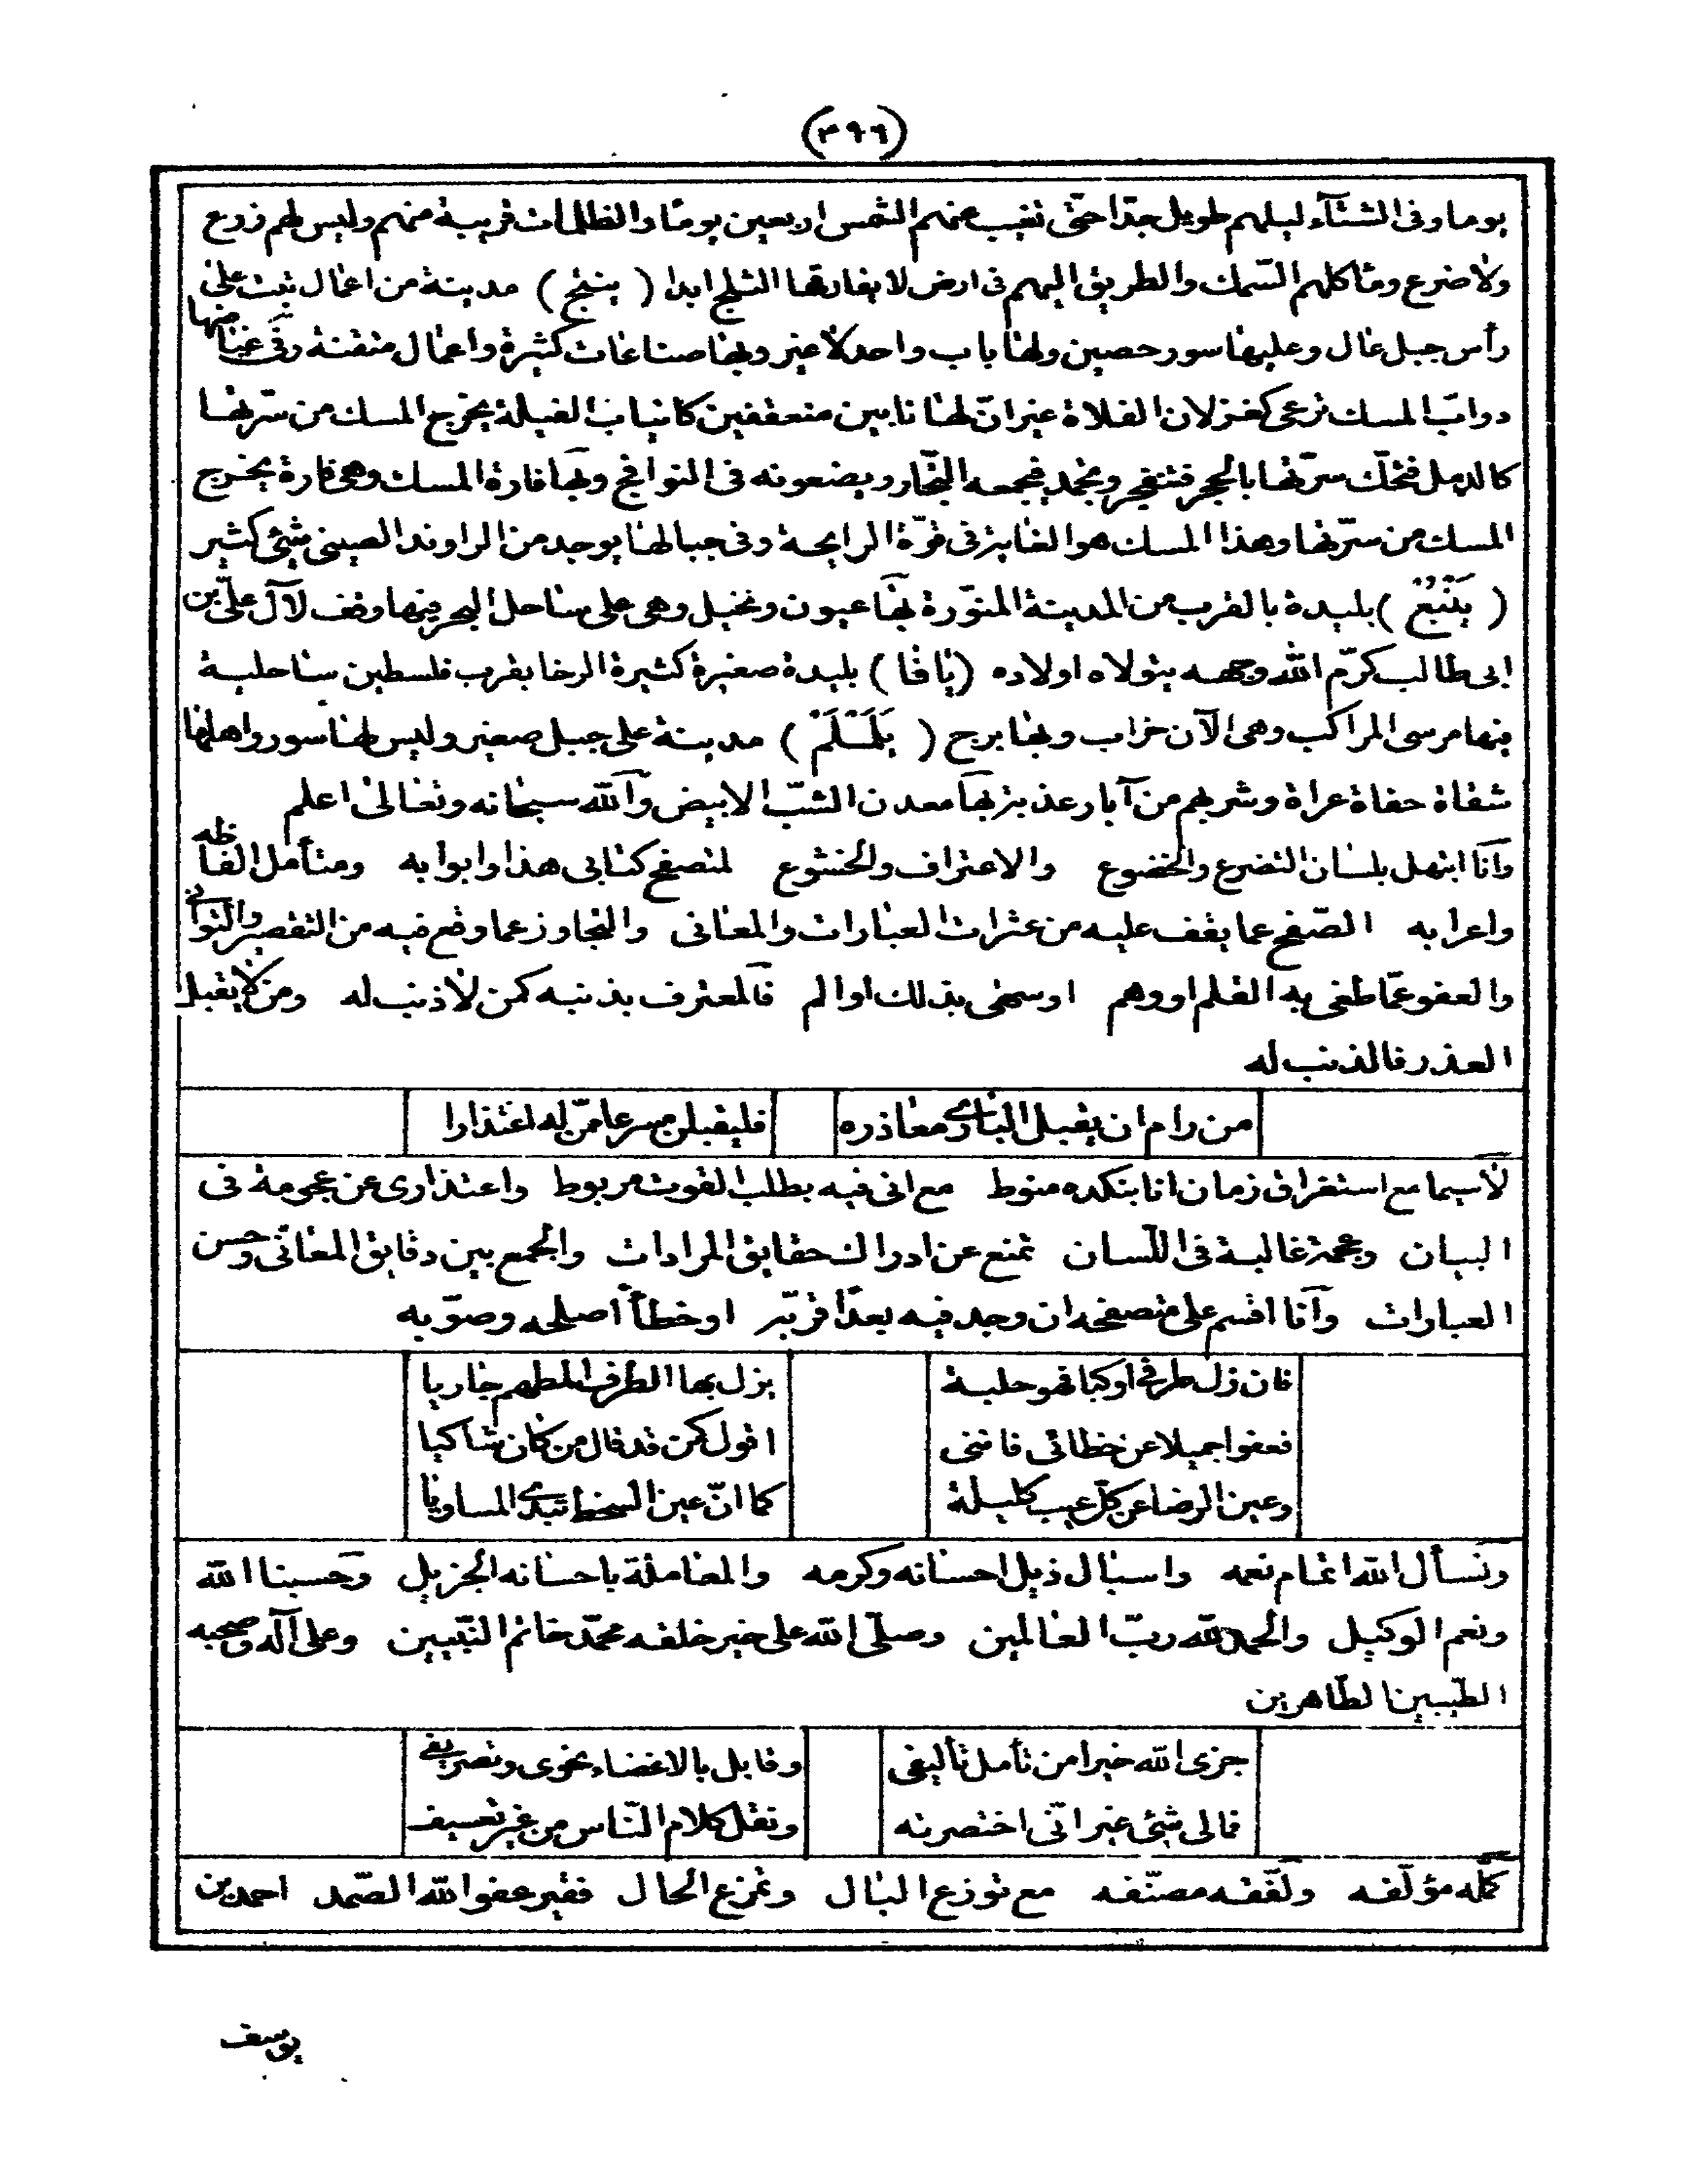 (٣٩٦)
يوما وفى الشتآء ليلهم طويل جدّا حتى تغيب عنهم الشمس اربعين يوما والظلمات قريبة منهم وليس لهم زرع
ولا ضرع وما كلهم السّمك والطريق اليهم فى ارض لا يفارقها الثلج ابدا ( ينبج ) مدينة من اعمال تبت على
رأس جبل عال وعليها سور حصين ولها باب واحد لا غير وبها صناعات كثيرة واعمال متقنة وفى غياضها
دوابّ المسك ترعى كغزلان الفلاة غير انّ لها نابين متعقفين كانياب الفيلة يخرج المسك من سرّتها
كالدمل فتحكّ سرّتها بالحجر فتنفجر ويجمد فيجمعه التجّار ويضعونه فى النوافج وبها فارة المسك وهى فارة يخرج
المسك من سرّتها وهذا المسك هو الفايز فى قوّة الرايحة وفى جبالها يوجد من الراوند الصينى شئ كثير
( يَنْبُعُ ) بليدة بالقرب من المدينة المنوّرة بها عيون ونخيل وهى على ساحل البحر فيها وقف لآل علىّ بن
ابى طالب كرّم الله وجهه يتولاه اولاده (يافا) بليدة صغيرة كثيرة الرخا بقرب فلسطين ساحلية
فيها مرسى المراكب وهى الآن خراب وبها برج ( يَلَمْلَمْ ) مدينة على جبل صغير وليس لها سور واهلها
شقاة حفاة عراة وشربهم من آبار عذبة بها معدن الشبّ الابيض والله سبحانه وتعالى اعلم
وانا ابتهل بلسان التضرع والخضوع والاعتراف والخشوع لمتصفح كتابى هذا وابوابه ومتأمل الفاظه
واعرابه الصّفح عما يقف عليه من عثرات العبارات والمعانى والتجاوز عما وقع فيه من التقصير والتوانى
والعفو عمّا طغى به القلم او وهم او سخى بذلك او الم فالمعترف بذنبه كمن لا ذنب له ومن لا يقبل
العذر فالذنب له
من رام ان يقبل البارى معاذره فليقبلن مسرعا من له اعتذارا
لا سيما مع استغراق زمان انا بنكده منوط مع انى فيه بطلب القوت مربوط واعتذارى عن عجومة فى
البيان وعجمة غالبة فى اللّسان تمنع عن ادراك حقايق المرادات والجمع بين دقايق المعانى وحسن
العبارات وانا اقسم على متصفحه ان وجد فيه بعدًا قرّبه او خطأ اصلحه وصوّبه
فان زل طرفى او كبا فهو حلبة يزل بها الطرف المطهم جاريا
فعفوا جميلا عن خطائى فاننى اقول كمن قد قال من كان شاكيا
وعين الرضا عن كلّ عيب كليلة كما انّ عين السخط تبدى المساويا
ونسأل الله اتمام نعمه واسبال ذيل احسانه وكرمه والمعاملة باحسانه الجزيل وحسبنا الله
ونعم الوكيل والحمد لله ربّ العالمين وصلّى الله على خير خلقه محمّد خاتم النبّيين وعلى آله وصحبه
الطيّبين الطّاهرين
جزى الله خيرا من تأمل تأليفى وقابل بالاغضاء نحوى وتصريفى
فما لى شئ غير انّنى اختصرته ونقل كلام النّاس من غير تعسيف
كمّله مؤلّفه ولفّقه مصنّفه مع توزع البال وتمزع الحال فقير عفو الله الصّمد احمد بن
يوسف